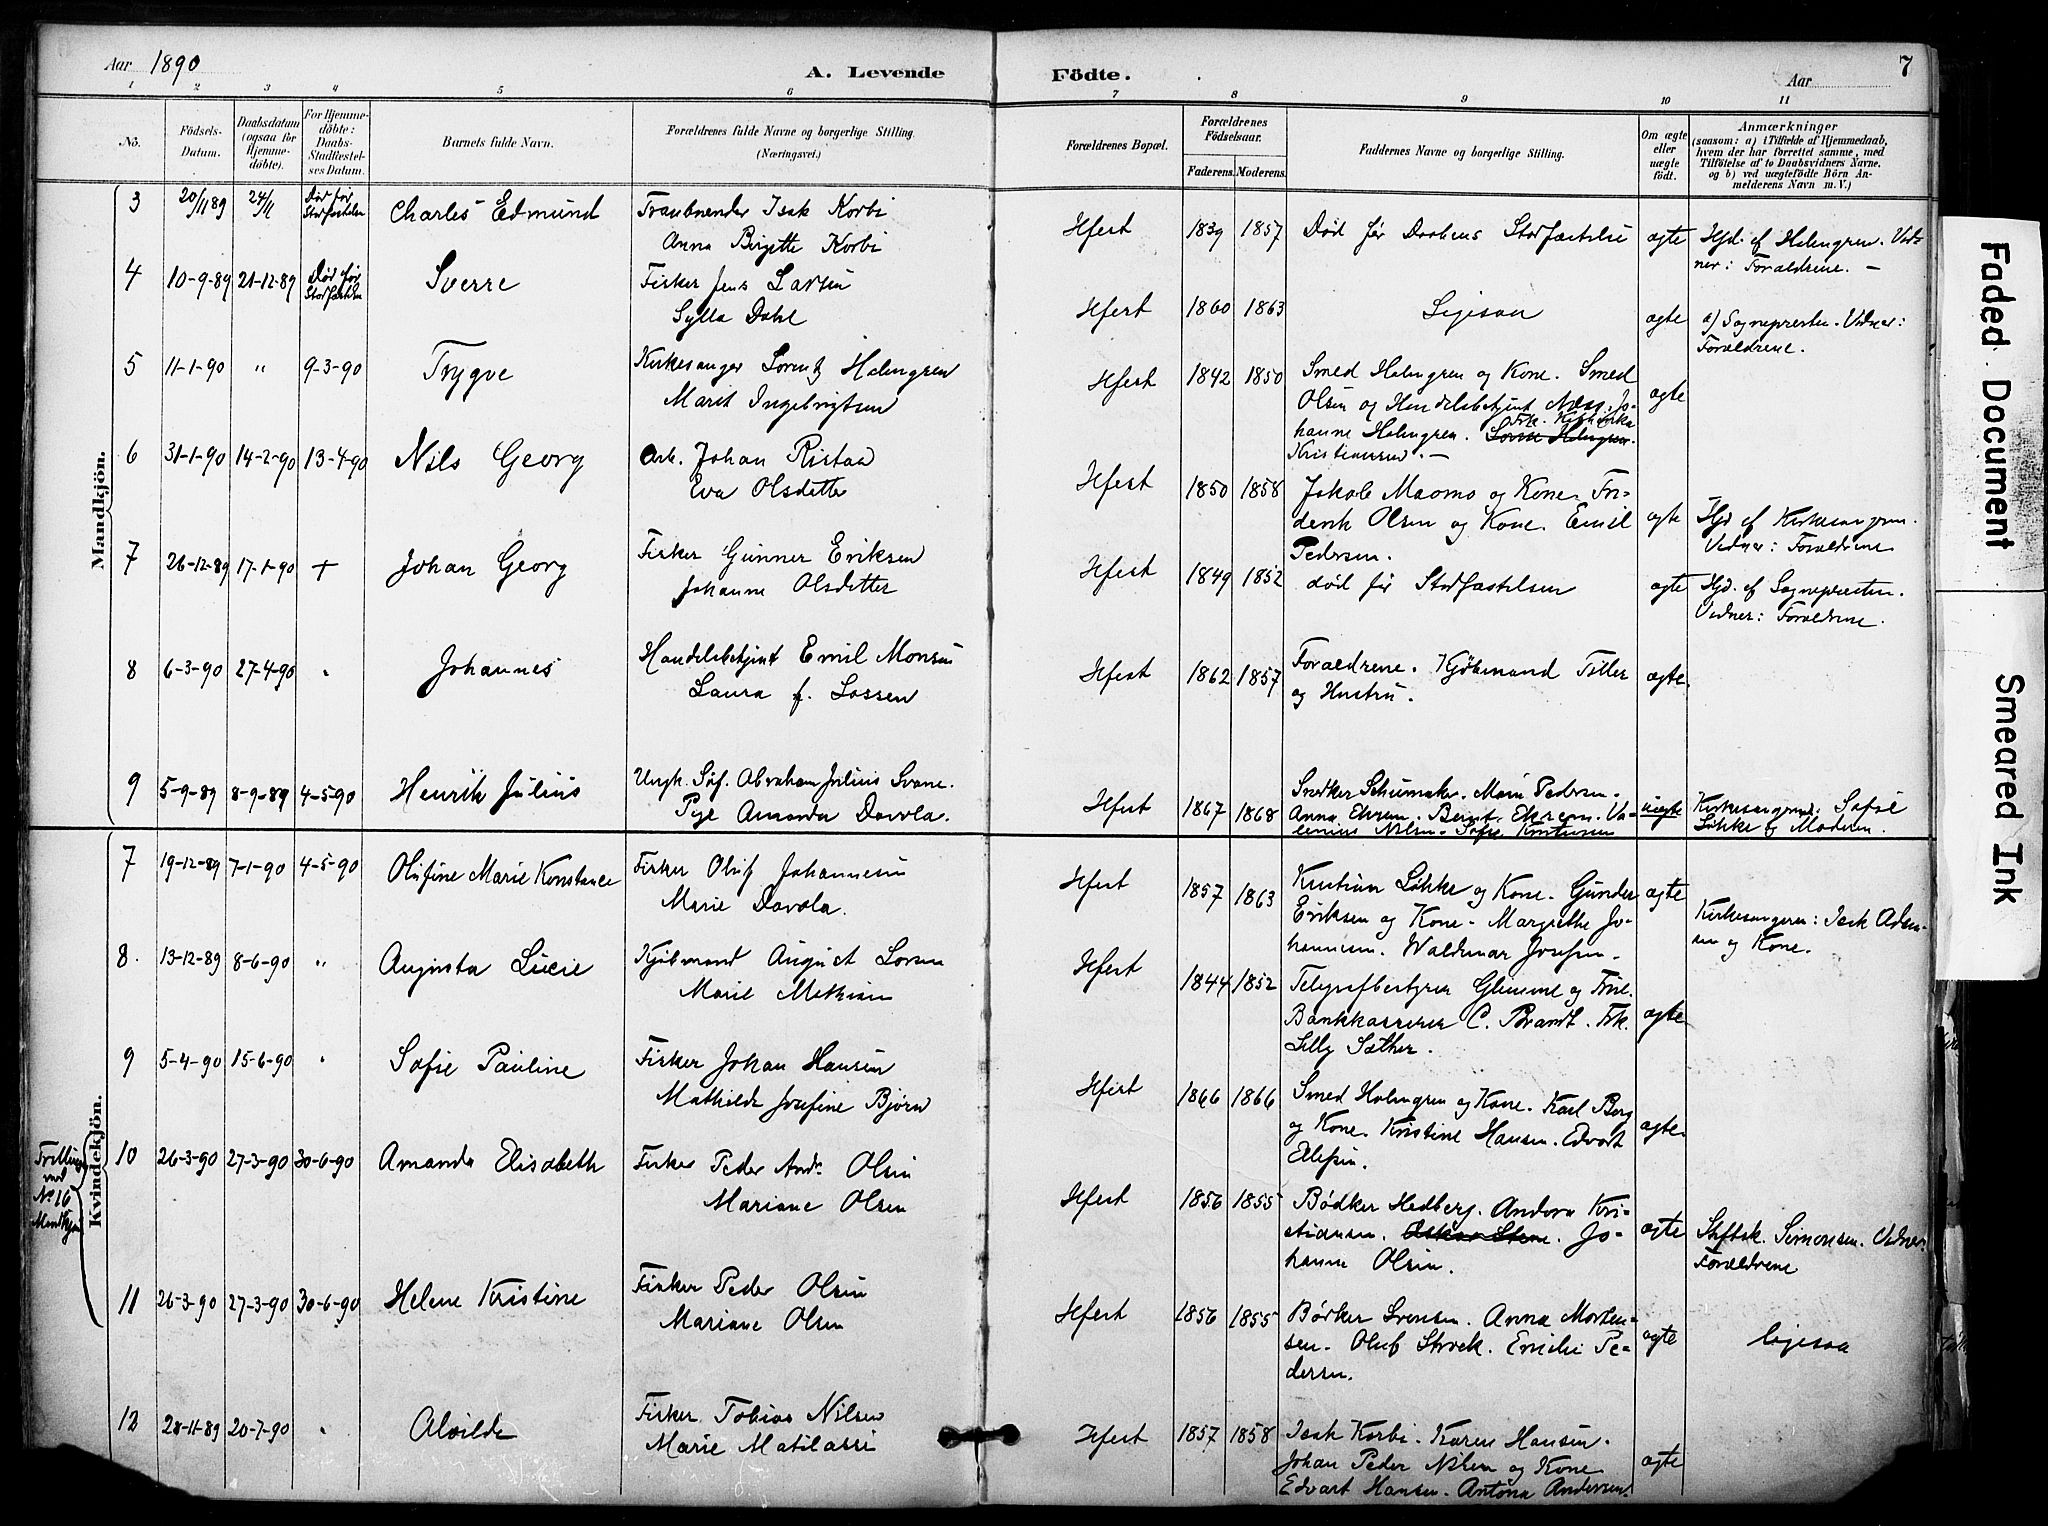 Aar 1890
A. Levende Födte.
Aar
7
1 2 3 4 5 6 7 8 9 10 11
No.
Födsels-Datum.
Daabsdatum (ogsaa for Hjemmedöbte).
For Hjemmedöbte: Daabs-Stadfæstelses Datum.
Barnets fulde Navn.
Forældrenes fulde Navne og borgerlige Stilling.
(Næringsvei.)
Forældrenes Bopæl.
Forældrenes Födselsaar.
Faderens. Moderens.
Faddernes Navne og borgerlige Stilling.
Om ægte eller uægte födt.
Anmærkninger
(saasom: a) i Tilfælde af Hjemmedaab, hvem der har forrettet samme, med Tilföielse af to Daabsvidners Navne, og b) ved uægtefödte Börn Anmelderens Navn m. V.)
Mandkjön.
3 20/11 89 24/11 Död før Stadfæstelse Charles Edmund
Isak Korbi
Anna Birgitte Korbi
Hfest 1839 1857 Död før Daabens Stadfæstelse ægte Hjd. af Holmgren. Vidner: Forældrene. —
4 10-9-89 21-12-89 Död før Stadfæstelse Sverre
Fisker Jens Larsen
Sylla Dahl
Hfest 1860 1863 Ligesaa ægte a) Sognepresten. Vidner: Forældrene.
5 11-1-90 " 9-3-90 Trygve
Kirkesanger Lorentz Holmgren
Marit Ingebrigtsen
Hfest 1842 1850 Smed Holmgren og Kone. Smed
Olsen og Handelsbetjent Næss. Johanne Holmgren.
Kristiansen. —
ægte
6 31-1-90 14-2-90 13-4-90 Nils Georg
Arb. Johan Ristad
Eva Olsdatter
Hfest 1850 1858 Jakob Maomo og Kone. Fri-
derik Olsen og Kone. Emil
Pedersen.
ægte Hjd af Kirkesangeren.
Vidner: Forældrene
7 26-12-89 17-1-90 + Johan Georg
Fisker Gunner Eriksen
Johanne Olsdatter
Hfest 1849 1852 död før Stadfæstelsen ægte Hjd. af Sognepræsten.
Vidner: Forældrene.
8 6-3-90 27-4-90 " Johannes
Handelsbetjent Emil Monsen
Laura f. Lossen
Hfest 1862 1857 Forældrene. Kjøbmand Tiller
og Hustru.
ægte.
9 5-9-89 8-9-89 4-5-90 Henrik Julius
Ungk. Søf. Abraham Julius Svane.
Pige Amanda Davola.
Hfest 1867 1868 Snedker Schumaker. Marie Pedersen.
Anna Ekrem. Bernt Ekrem. Va-
lenius Nilsen. Sofie Kristiansen
uægte Kirkesangeren: Sofie
Løkke og Moderen.
Kvindekjön.
7 19-12-89 7-1-90 4-5-90 Olufine Marie Konstance
Fisker Oluf Johannesen
Marie Davola.
Hfest 1857 1863 Kristian Løkke og Kone. Gunder
Eriksen og Kone. Margrethe Jo-
hannesen. Waldemar Josefsen.
ægte Kirkesangeren: Isak
og Kone.
8. 13-12-89 8-6-90 " Augusta Lucie
Kjøbmand August Lorsen
Marie Mathisen
Hfest 1844 1852 Telegrafbestyrer Glimme og Frue.
Bankkasserer C. Brandt. Frk.
Lilly Sæther.
ægte
9 5-4-90 15-6-90 " Sofie Pauline
Fisker Johan Hansen
Mathilde Josefine Bjørn
Hfest 1866 1866 Smed Holmgren og Kone. Karl Berg
og Kone. Kristine Hansen. Edvart
Ellefsen.
ægte.
Trilling med No 16 Mandkjøn
10 26-3-90 27-3-90 30-6-90 Amanda Elisabeth
Fisker Peder Andr. Olsen
Mariane Olsen
Hfest 1856 1855 Bødker Hedberg. Andora Kri-
stiansen. Oskar Stene. Jo-
hanne Olsen.
ægte Stiftsk. Simonsen. Vidner:
Forældrene
11 26-3-90 27-3-90 30-6-90 Helene Kristine
Fisker Peder Olsen
Mariane Olsen
Hfest 1856 1855 Bødker Svensen. Anna Morten-
sen. Oluf Strøck. Emilie Pe-
dersen.
ægte Ligesaa
12 28-11-89 20-7-90 " Alvilde
Fisker Tobias Nilsen
Marie Matilassi
Hfest 1857 1858 Isak Korbi. Karen Hansen.
Johan Peder Nilsen og Kone
Edvart Hansen. Antona Andersen.
ægte
Faded Document
Smeared Ink